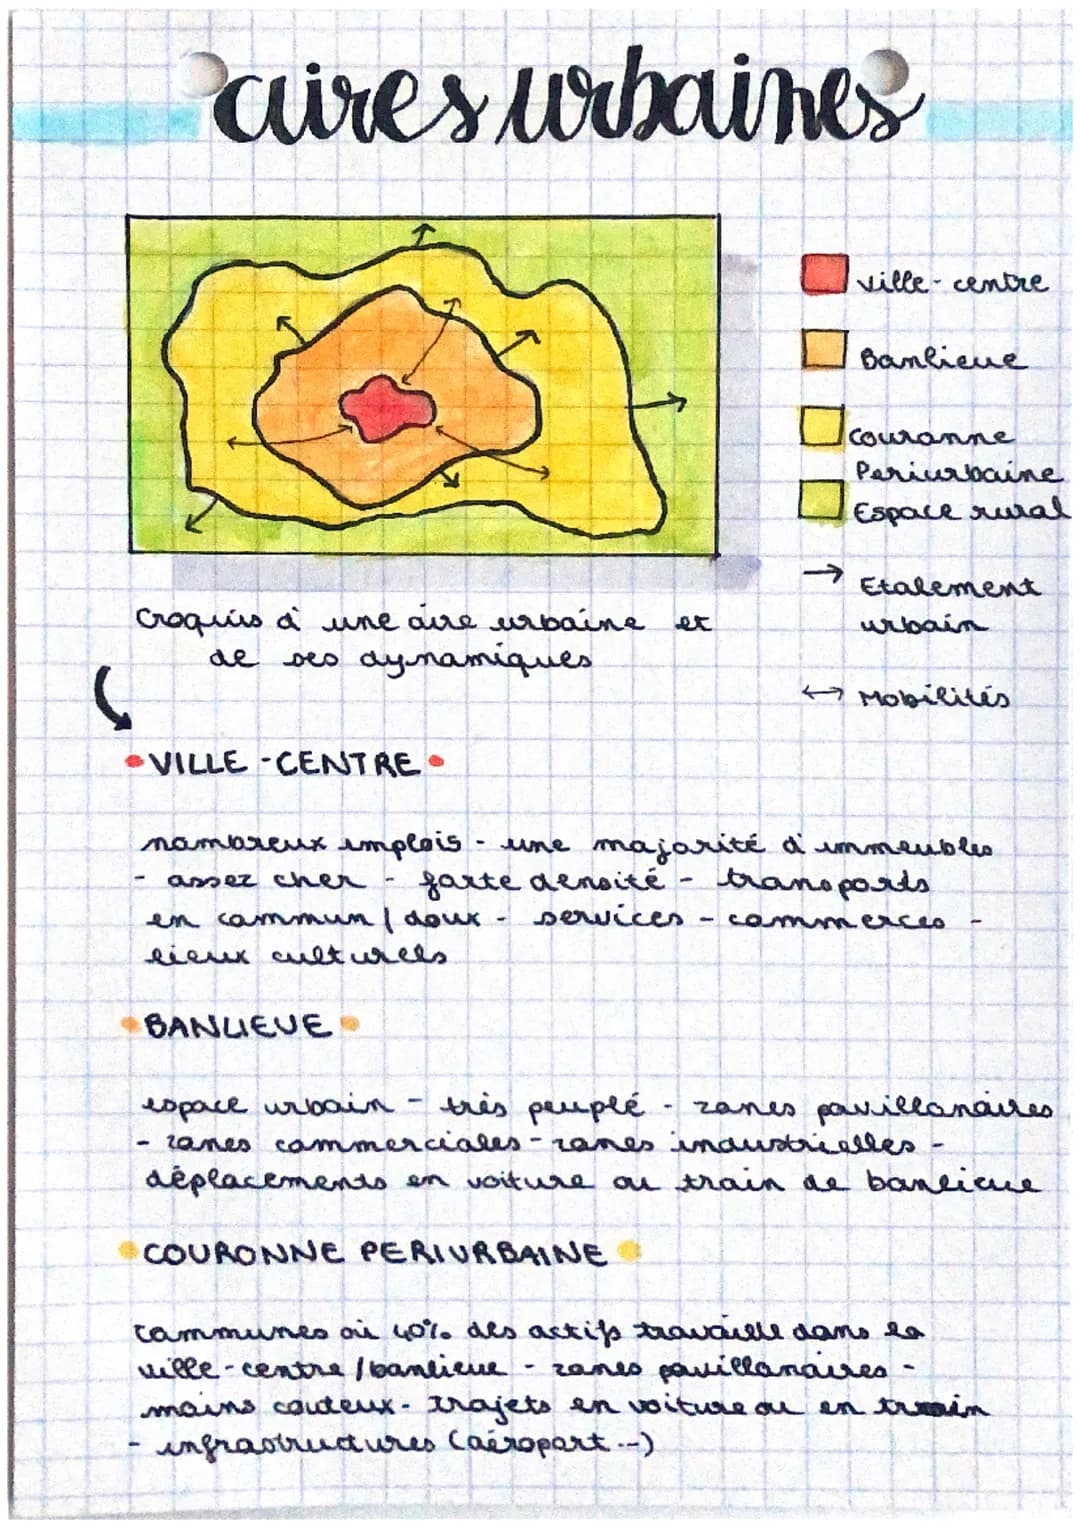 aires urbaines
ville-centre
Banlieue
couronne
Periurbaine
Espace rural
→ Etalement
urbain
↔ Mobilités
Croquis d'une aire urbaine et
de ses dynamiques
• VILLE-CENTRE •
nombreux emplois - une majorité d'immeubles
- assez cher - forte densité - transports
en commun / doux - services - commerces -
lieux culturels
• BANLIEUE •
espace urbain - très peuplé - zones pavillonaires
- zones commerciales - zones industrielles -
déplacements en voiture ou train de banlieue
• COURONNE PERIURBAINE •
communes où 40% des actifs travaille dans la
ville-centre / banlieue - zones pavillonaires -
moins couteux - trajets en voiture ou en train
- infrastructures (aéroport...)